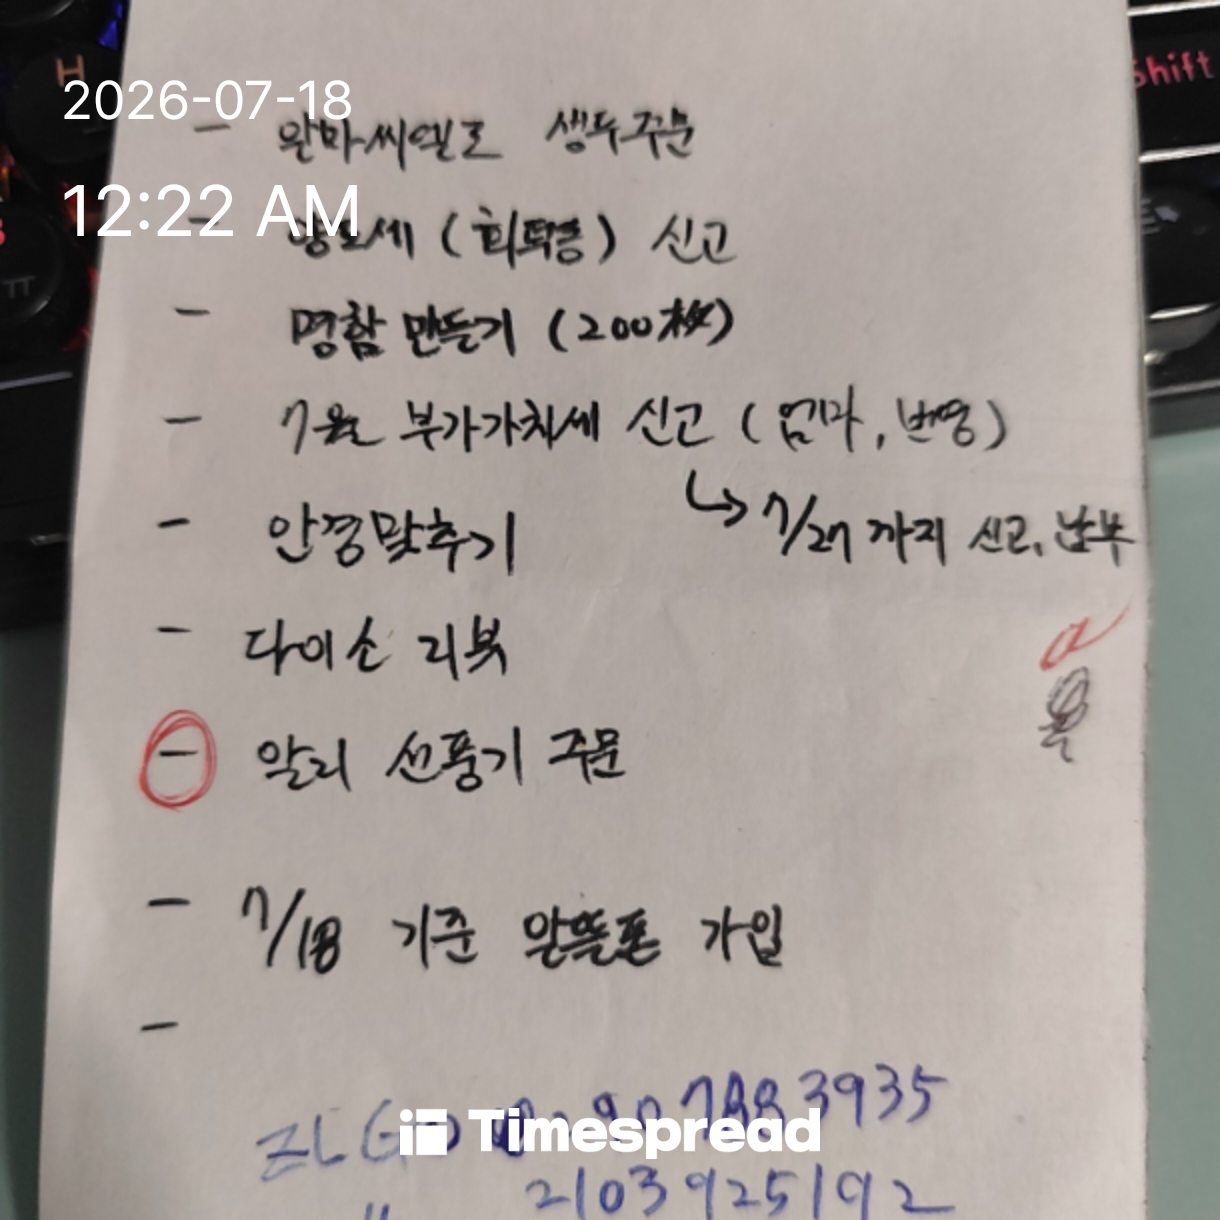 2026-07-18
- 알마씨엘로 생두주문
12:22 AM
- 양도세 (희택총) 신고
- 명함 만들기 (200枚)
- 7월 부가가치세 신고 (엄마, 번영)
↳ 7/27 까지 신고, 납부
- 안경맞추기
- 다이소 리뷰
- 알리 선풍기 주문
- 7/18 기준 알뜰폰 가입
-
3935
Timespread
2103925192
"
Shift
H